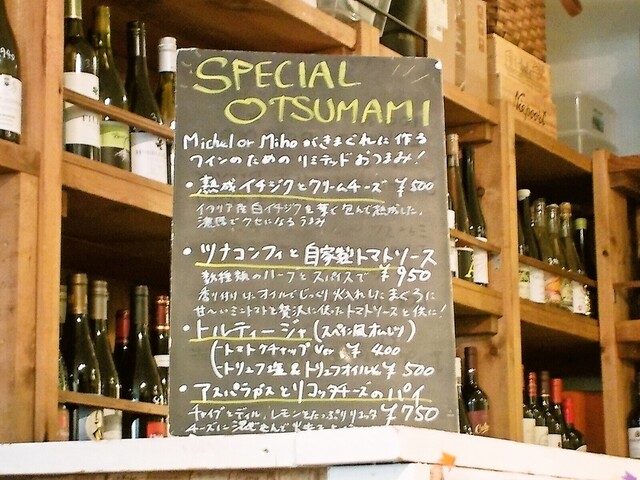 SPECIAL
OTSUMAMI
Michel or Miho がきまぐれに作る
ワインのための リミテッドおつまみ!
・熟成イチジクとクリームチーズ ¥500
イタリア産白イチジクを 包んで熟成した、
濃厚でクセになるうまみ
・ツナコンフィと自家製トマトソース
¥950
数種類のハーブとスパイスで
香り付けしオイルでじっくり火入れしたまぐろに
甘〜いミニトマトを贅沢に使ったトマトソースと供に!
・トルティージャ(スペイン風オムレツ)
(トマトケチャップ ver ¥ 400
トリュフ塩&トリュフオイル ¥500
・アスパラガスとリコッタチーズのパイ
¥750
チャイブとディル、レモンとたっぷりリコッタ
チーズに